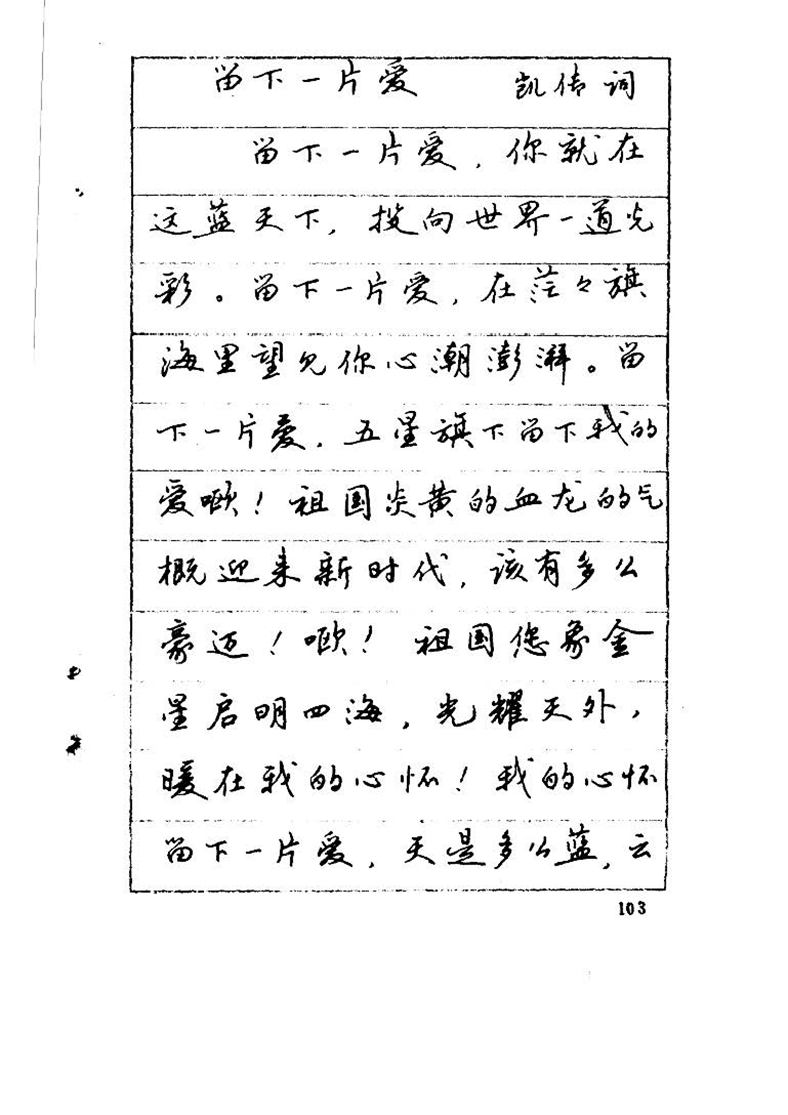 留下一片爱 凯传词
留下一片爱，你就在
这蓝天下，投向世界一道光
彩。留下一片爱，在茫々旗
海里望见你心潮澎湃。留
下一片爱，五星旗下留下我的
爱噢！祖国炎黄的血龙的气
概迎来新时代，该有多么
豪迈！噢！祖国您象金
星启明四海，光耀天外，
暖在我的心怀！我的心怀
留下一片爱，天是多么蓝，云
103